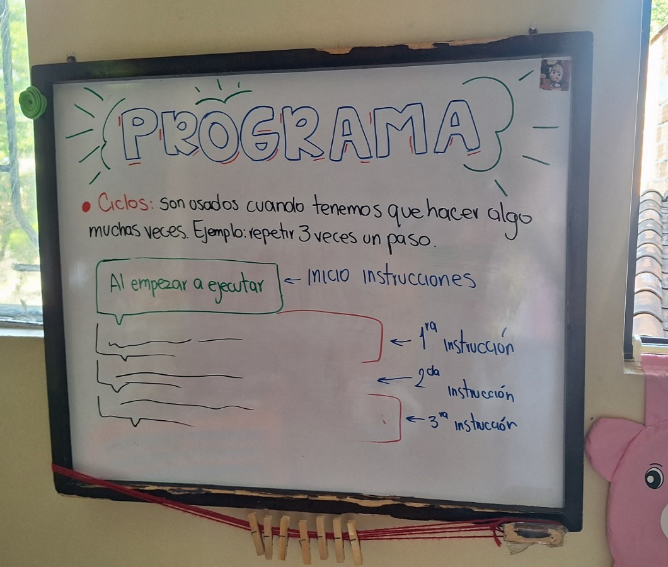 PROGRAMA
• Ciclos: son usados cuando tenemos que hacer algo
muchas veces. Ejemplo: repetir 3 veces un paso.
Al empezar a ejecutar ← Inicio instrucciones
← 1ra instrucción
← 2da instrucción
← 3ra instrucción